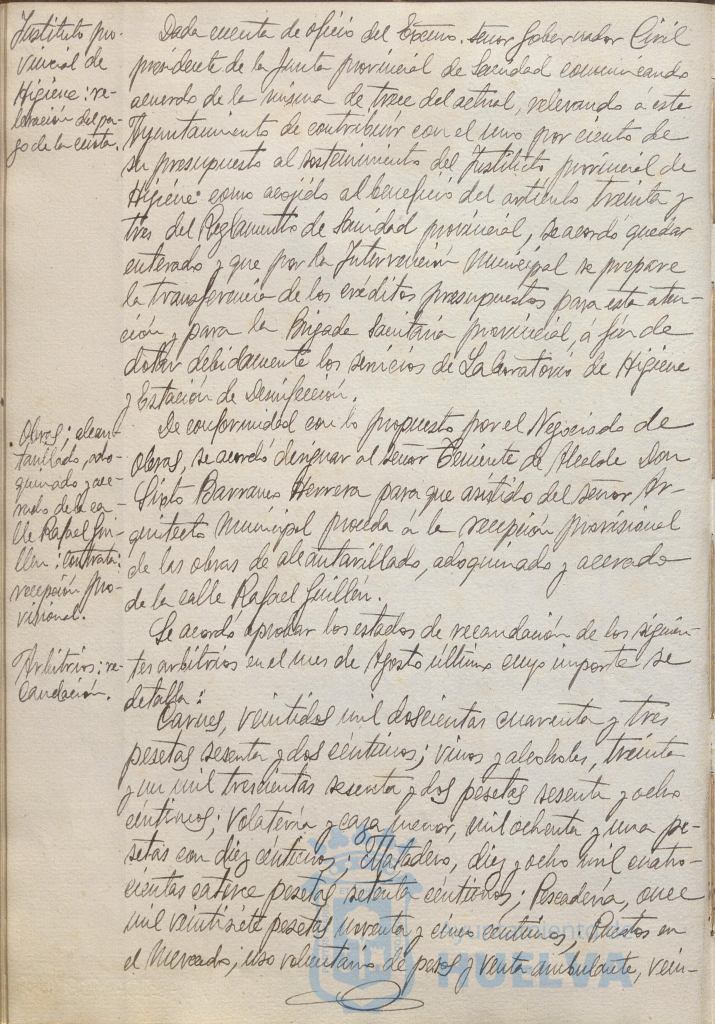 Instituto pro-
vincial de
Higiene: re-
levación del pa-
go de la cuota.
Dada cuenta de oficio del Excmo. señor Gobernador Civil
presidente de la Junta provincial de Sanidad comunicando
acuerdo de la misma de trece del actual, relevando á este
Ayuntamiento de contribuir con el uno por ciento de
su presupuesto al sostenimiento del Instituto provincial de
Higiene como acogido al beneficio del artículo treinta y
tres del Reglamento de Sanidad provincial, se acordó quedar
enterado y que por la Intervención Municipal se prepare
la transferencia de los créditos presupuestos para esta aten-
ción y para la Brigada Sanitaria provincial, á fin de
dotar debidamente los servicios de Laboratorio de Higiene
y Estación de Desinfección.
Obras; alcan-
tarillado, ado-
quinado y ace-
rado de la ca-
lle Rafael Gui-
llén: contrata:
recepción pro-
visional.
De conformidad con lo propuesto por el Negociado de
Obras, se acordó designar al señor Teniente de Alcalde Don
Sixto Barranco Herrera para que asistido del señor Ar-
quitecto Municipal proceda á la recepción provisional
de las obras de alcantarillado, adoquinado y acerado
de la calle Rafael Guillén.
Arbitrios: re-
caudación.
Se acordó aprobar los estados de recaudación de los siguien-
tes arbitrios en el mes de Agosto último cuyo importe se
detalla:
Carnes, veintidos mil doscientas cuarenta y tres
pesetas sesenta y dos céntimos; vinos y alcoholes, treinta
y un mil trescientas sesenta y dos pesetas sesenta y ocho
céntimos; volatería y caza menor, mil ochenta y una pe-
setas con diez céntimos; Matadero, diez y ocho mil cuatro-
cientas catorce pesetas setenta céntimos; Pescadería, once
mil veintisiete pesetas noventa y cinco céntimos; Puestos en
el Mercado; uso voluntario de pesos y venta ambulante, vein-
Ayuntamiento de
HUELVA